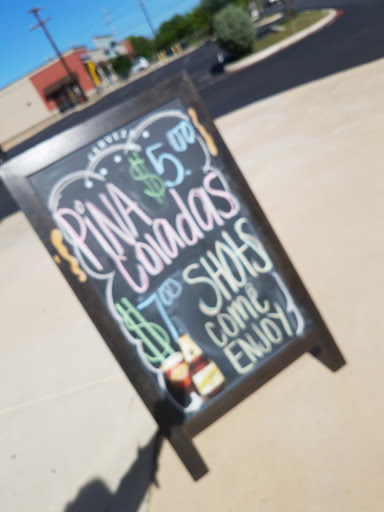 CERVEZA
$5.00
PiNA
Coladas
$7.00 SHOTS
come
ENJOY